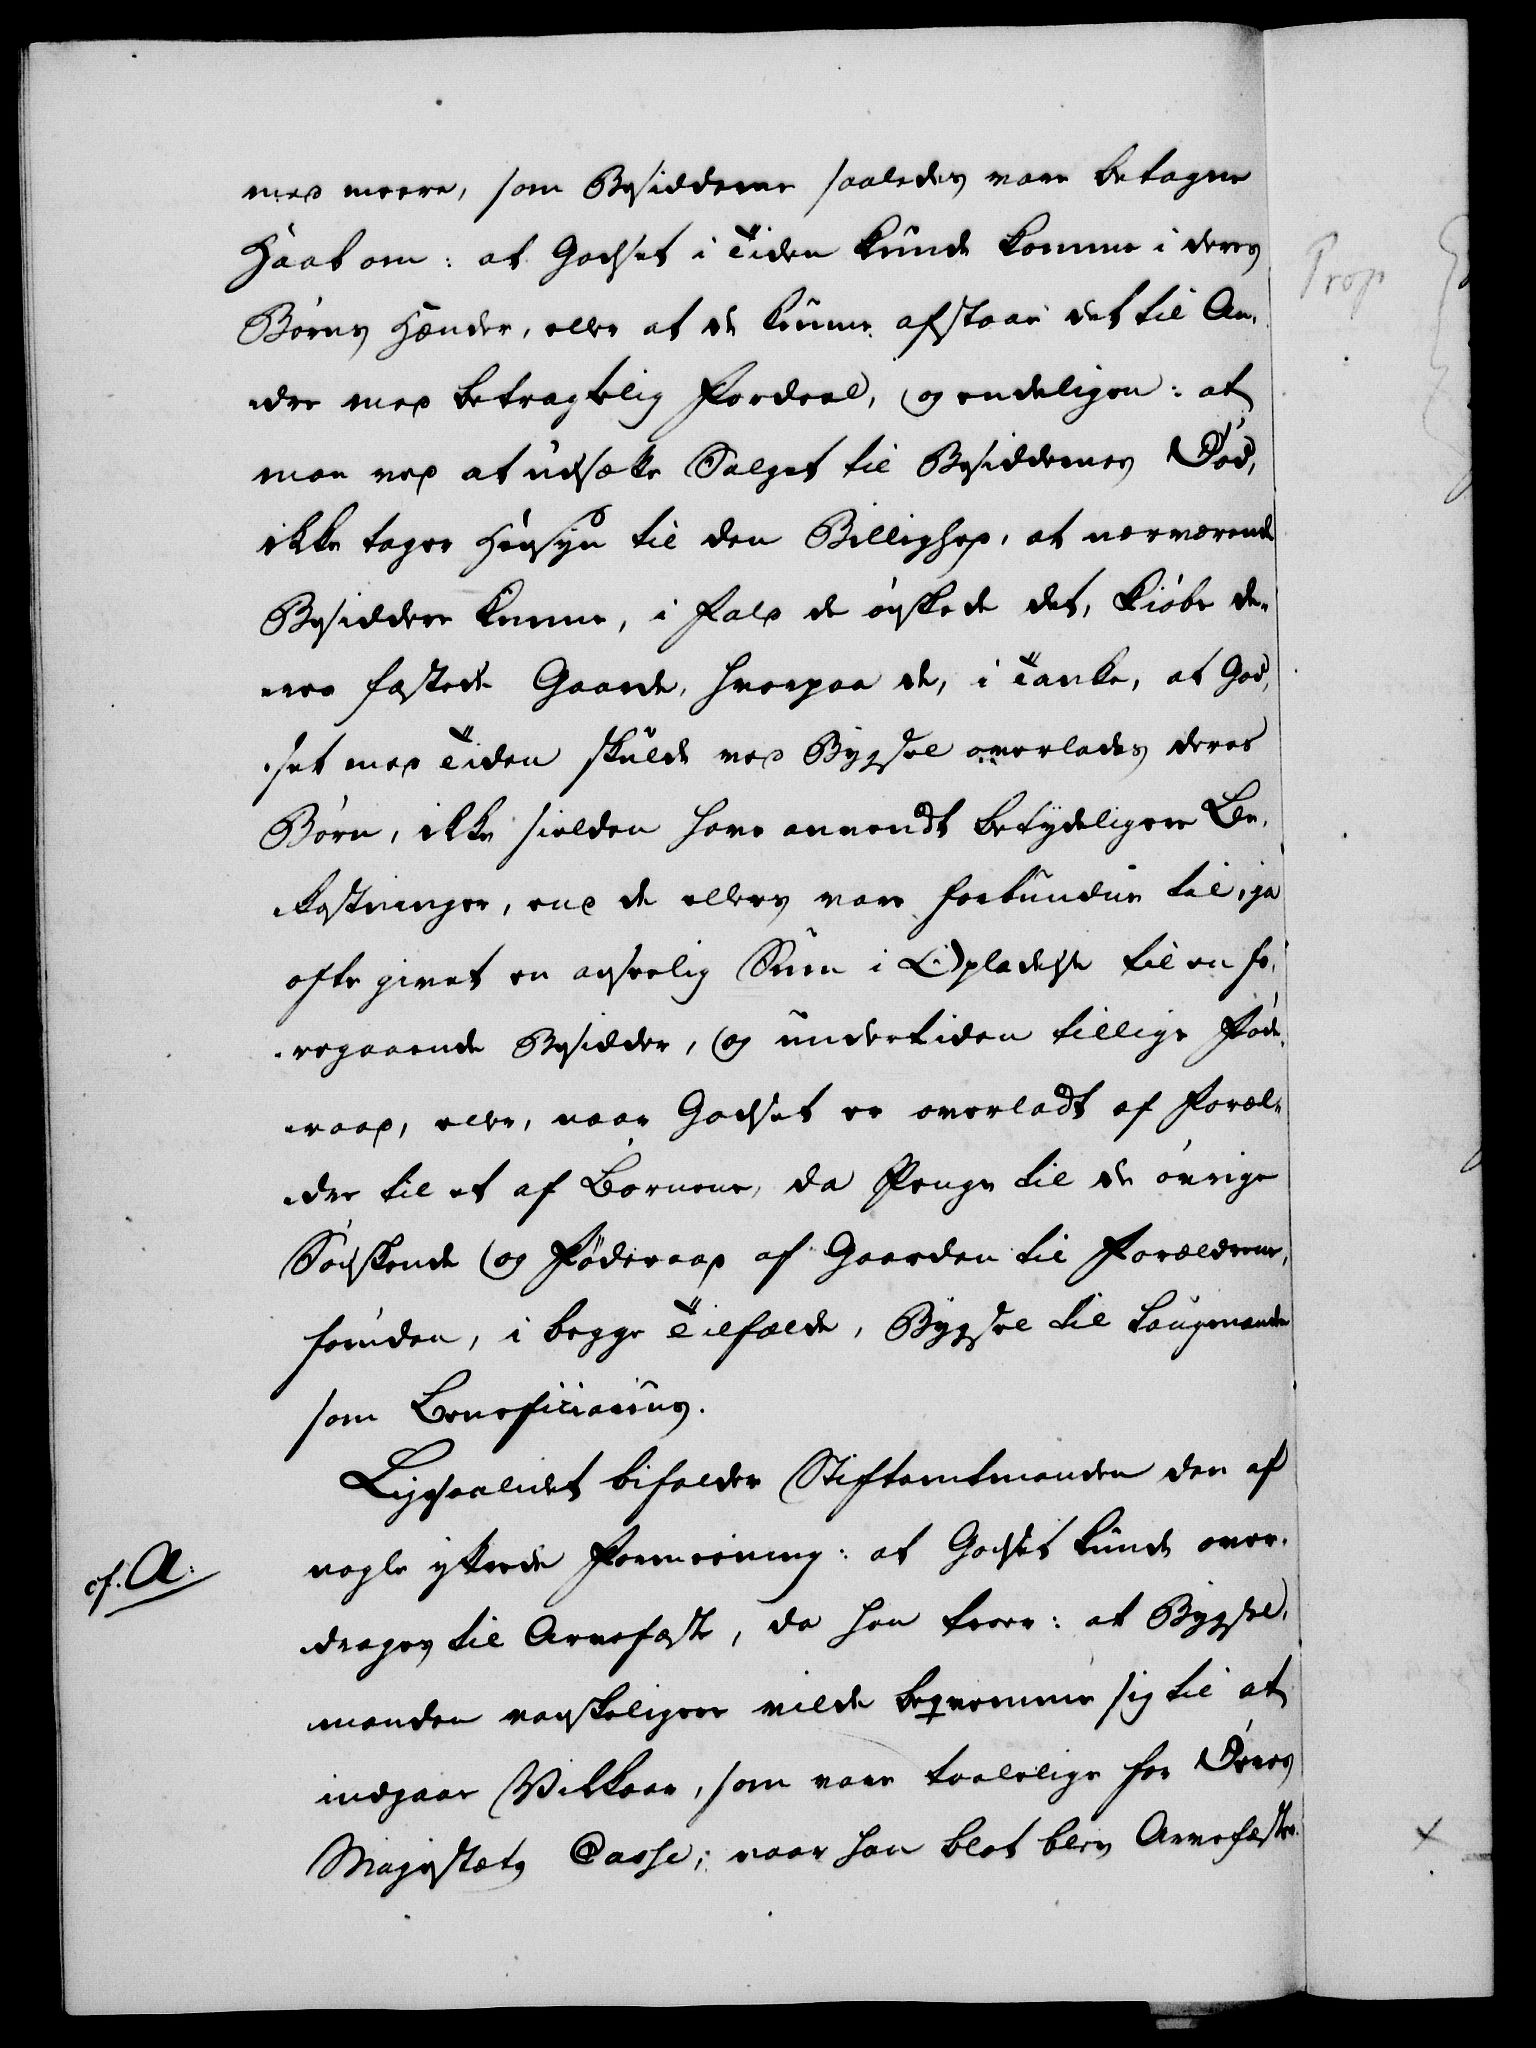 med meere, som Besidderne saaledes vare betagne
Haab om: at Godset i Tiden kunde komme i deres
Børns Hænder, eller at de kunne afstaae det til An-
dre med betragtelig Fordeel, og endeligen: at
man ved at udsætte Salget til Besiddernes Død,
ikke tager Hensyn til den Billighed, at nærværende
Besiddere kunne, i Fald de ønskede det, kiøbe de-
res fæstede Gaarde, hvorpaa de, i Tanke, at God-
set med Tiden skulde ved Bygsel overlades deres
Børn, ikke sielden have anvendt betydeligere Be-
kostninger, end de ellers vare forbundne til, ja
ofte givet en anseelig Sum i Opladelse til en fo-
regaaende Besidder, og undertiden tillige Føde-
raad, eller, naar Godset er overladt af Foræl-
dre til et af Børnene, da Penge til de øvrige
Sødskende og Føderaad af Gaarden til Forældrene,
foruden, i begge Tilfælde, Bygsel til Laugmanden
som Beneficiarius.
Ligesaalidet bifalder Stiftamtmanden den af
nogle yttrede Formeening: at Godset kunde over-
cf. A.
drages til Arvefæste, da han troer: at Bygsel-
manden vanskeligere vilde beqvemme sig til at
indgaae Vilkaar, som vare taalelige for Deres
Majestæts Casse; naar han blot blev Arvefæster
Prop